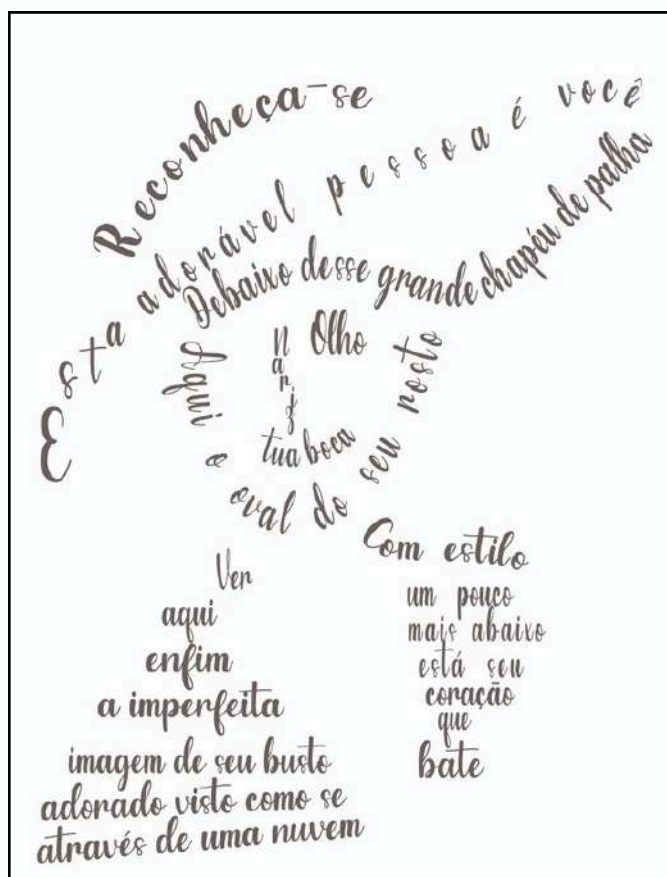 Reconheça-se
Esta adorável pessoa é você
Debaixo desse grande chapéu de palha
Olho
Nariz
tua boca
Aqui o oval do seu rosto
Com estilo
um pouco
mais abaixo
está seu
coração
que
bate
Ver
aqui
enfim
a imperfeita
imagem de seu busto
adorado visto como se
através de uma nuvem